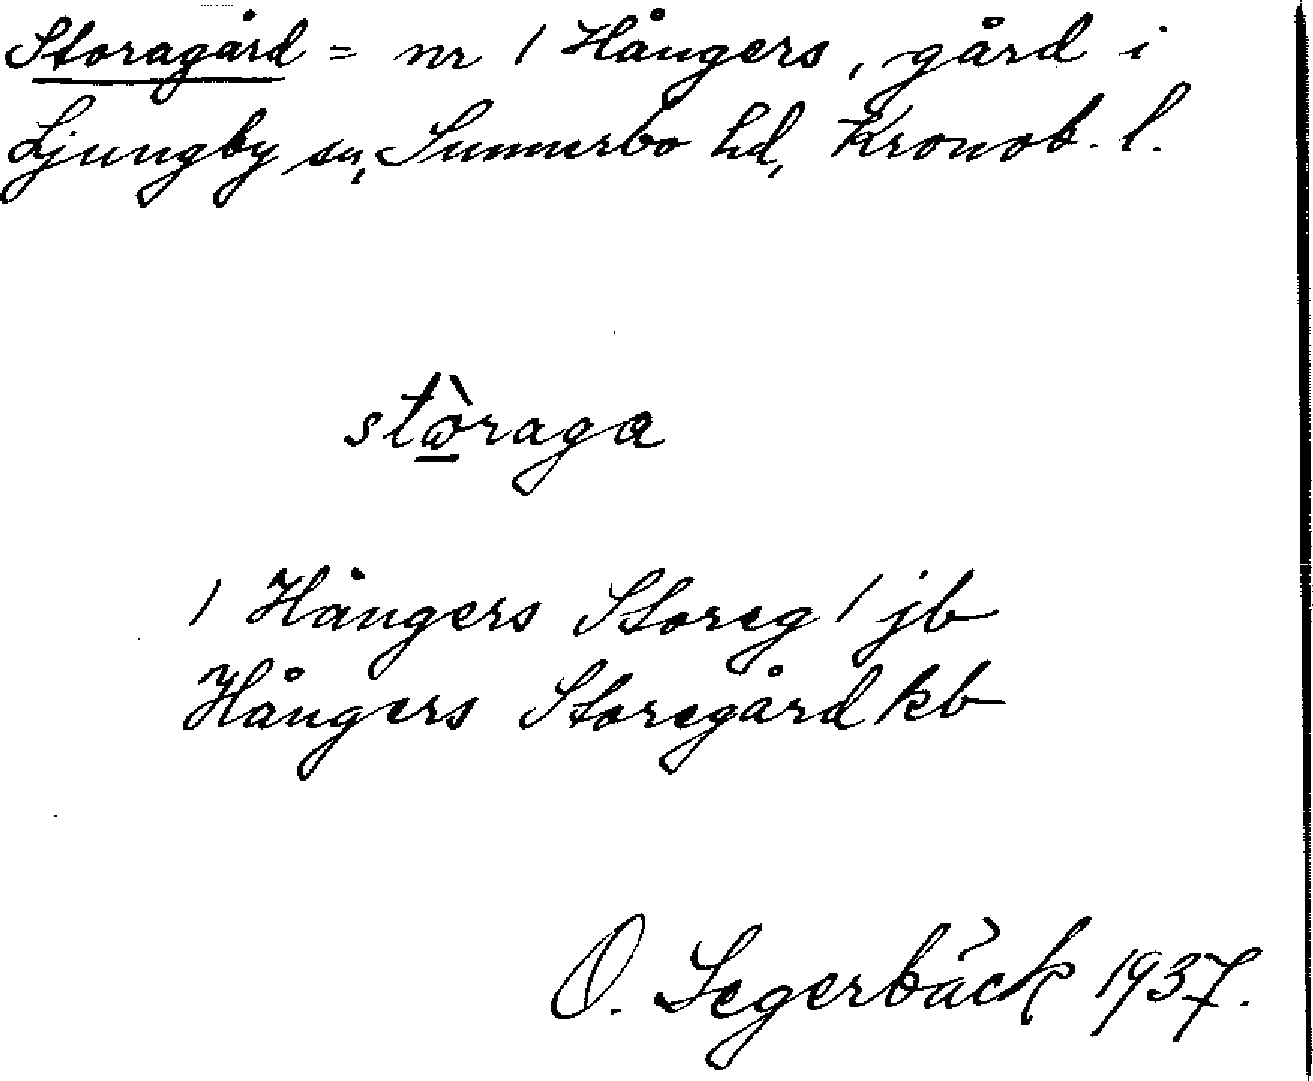 Storagård = nr 1 Hångers, gård i
Ljungby sn, Sunnerbo hd, Kronob. l.
stòraga
1 Hångers Storeg 1 jb
Hångers Storegård kb
O. Segerbäck 1937.